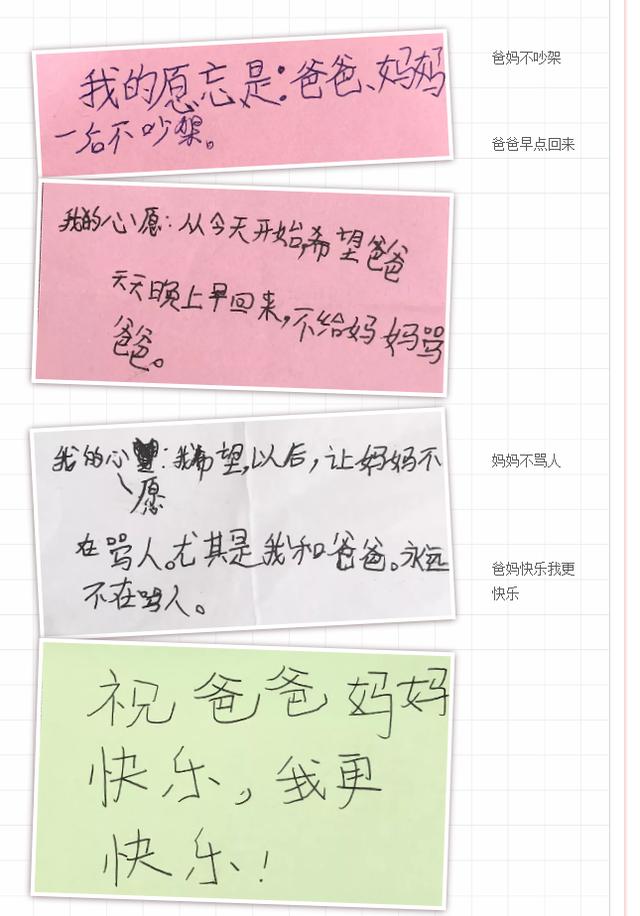 我的愿忘是：爸爸、妈妈
一后不吵架。
爸妈不吵架
爸爸早点回来
我的心愿：从今天开始，希望爸爸
天天晚上早回来，不给妈妈骂
爸爸。
我的心愿：我希望，以后，让妈妈不
在骂人。尤其是我和爸爸。永远
不在骂人。
妈妈不骂人
爸妈快乐我更
快乐
祝爸爸妈妈
快乐，我更
快乐！